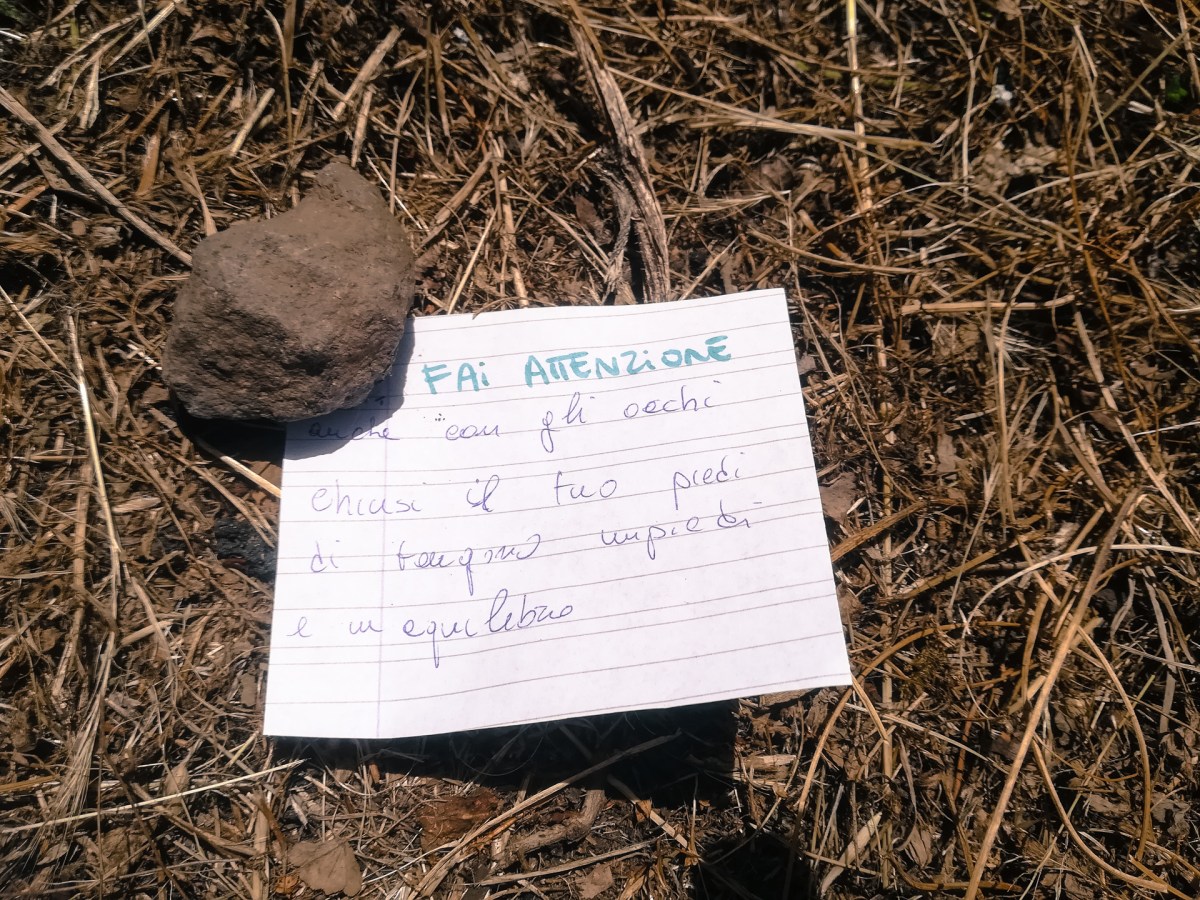 FAi ATTENZiONE
anche con gli occhi
chiusi il tuo piedi
di tengono impiedi
e in equilibrio